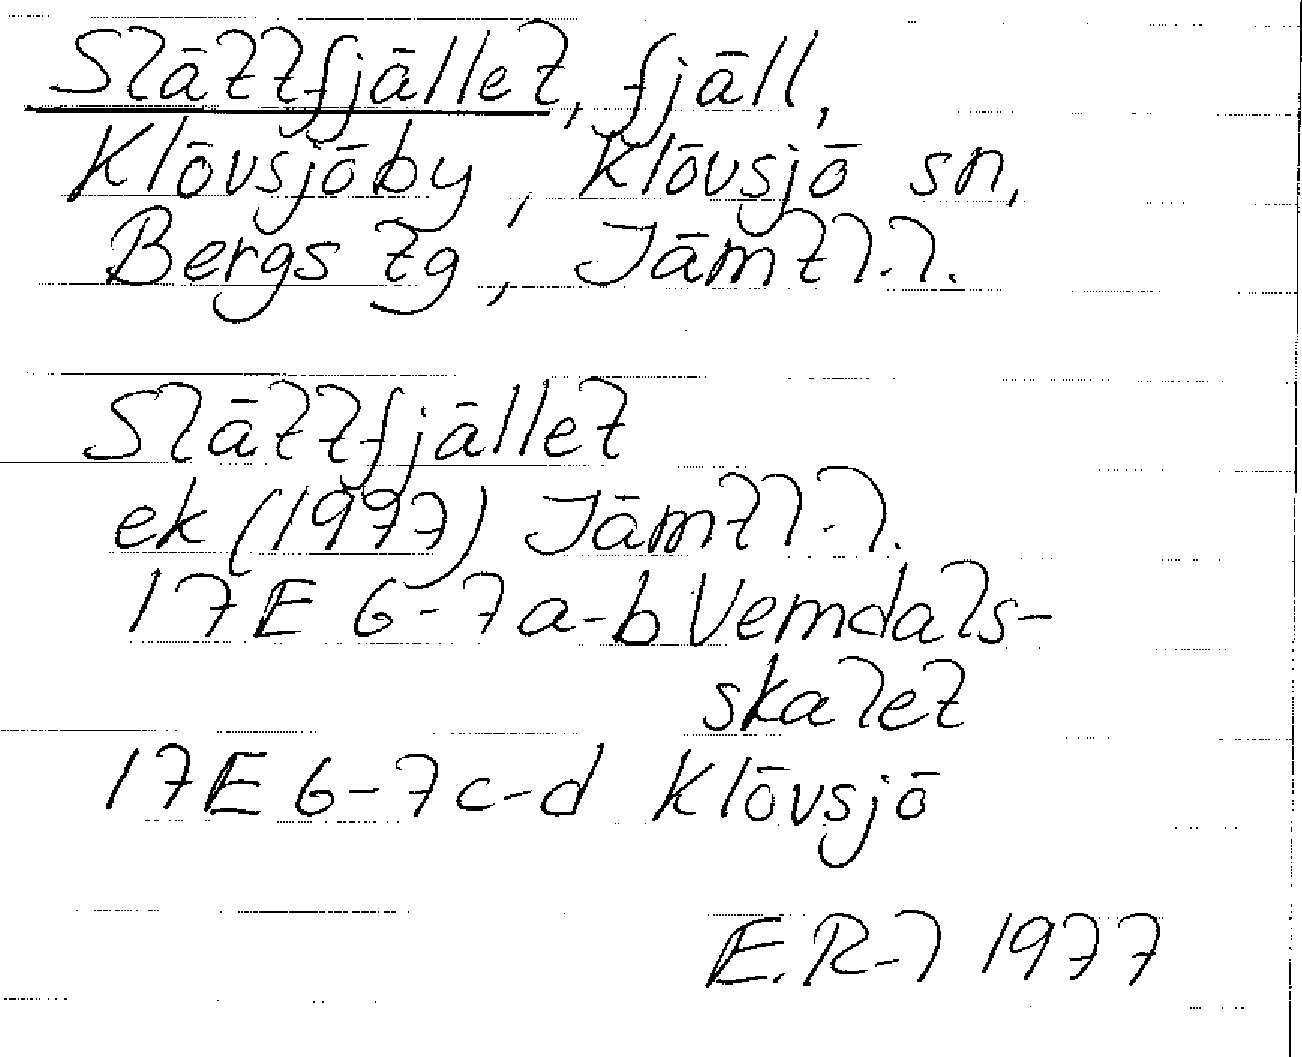 Slättfjället, fjäll,
Klövsjöby, Klövsjö sn,
Bergs tg, Jämtl.l.
Slättfjället
ek (1977) Jämtl.l.
17E 6-7a-b Vemdals-
skalet
17E 6-7c-d Klövsjö
E.R-l 1977